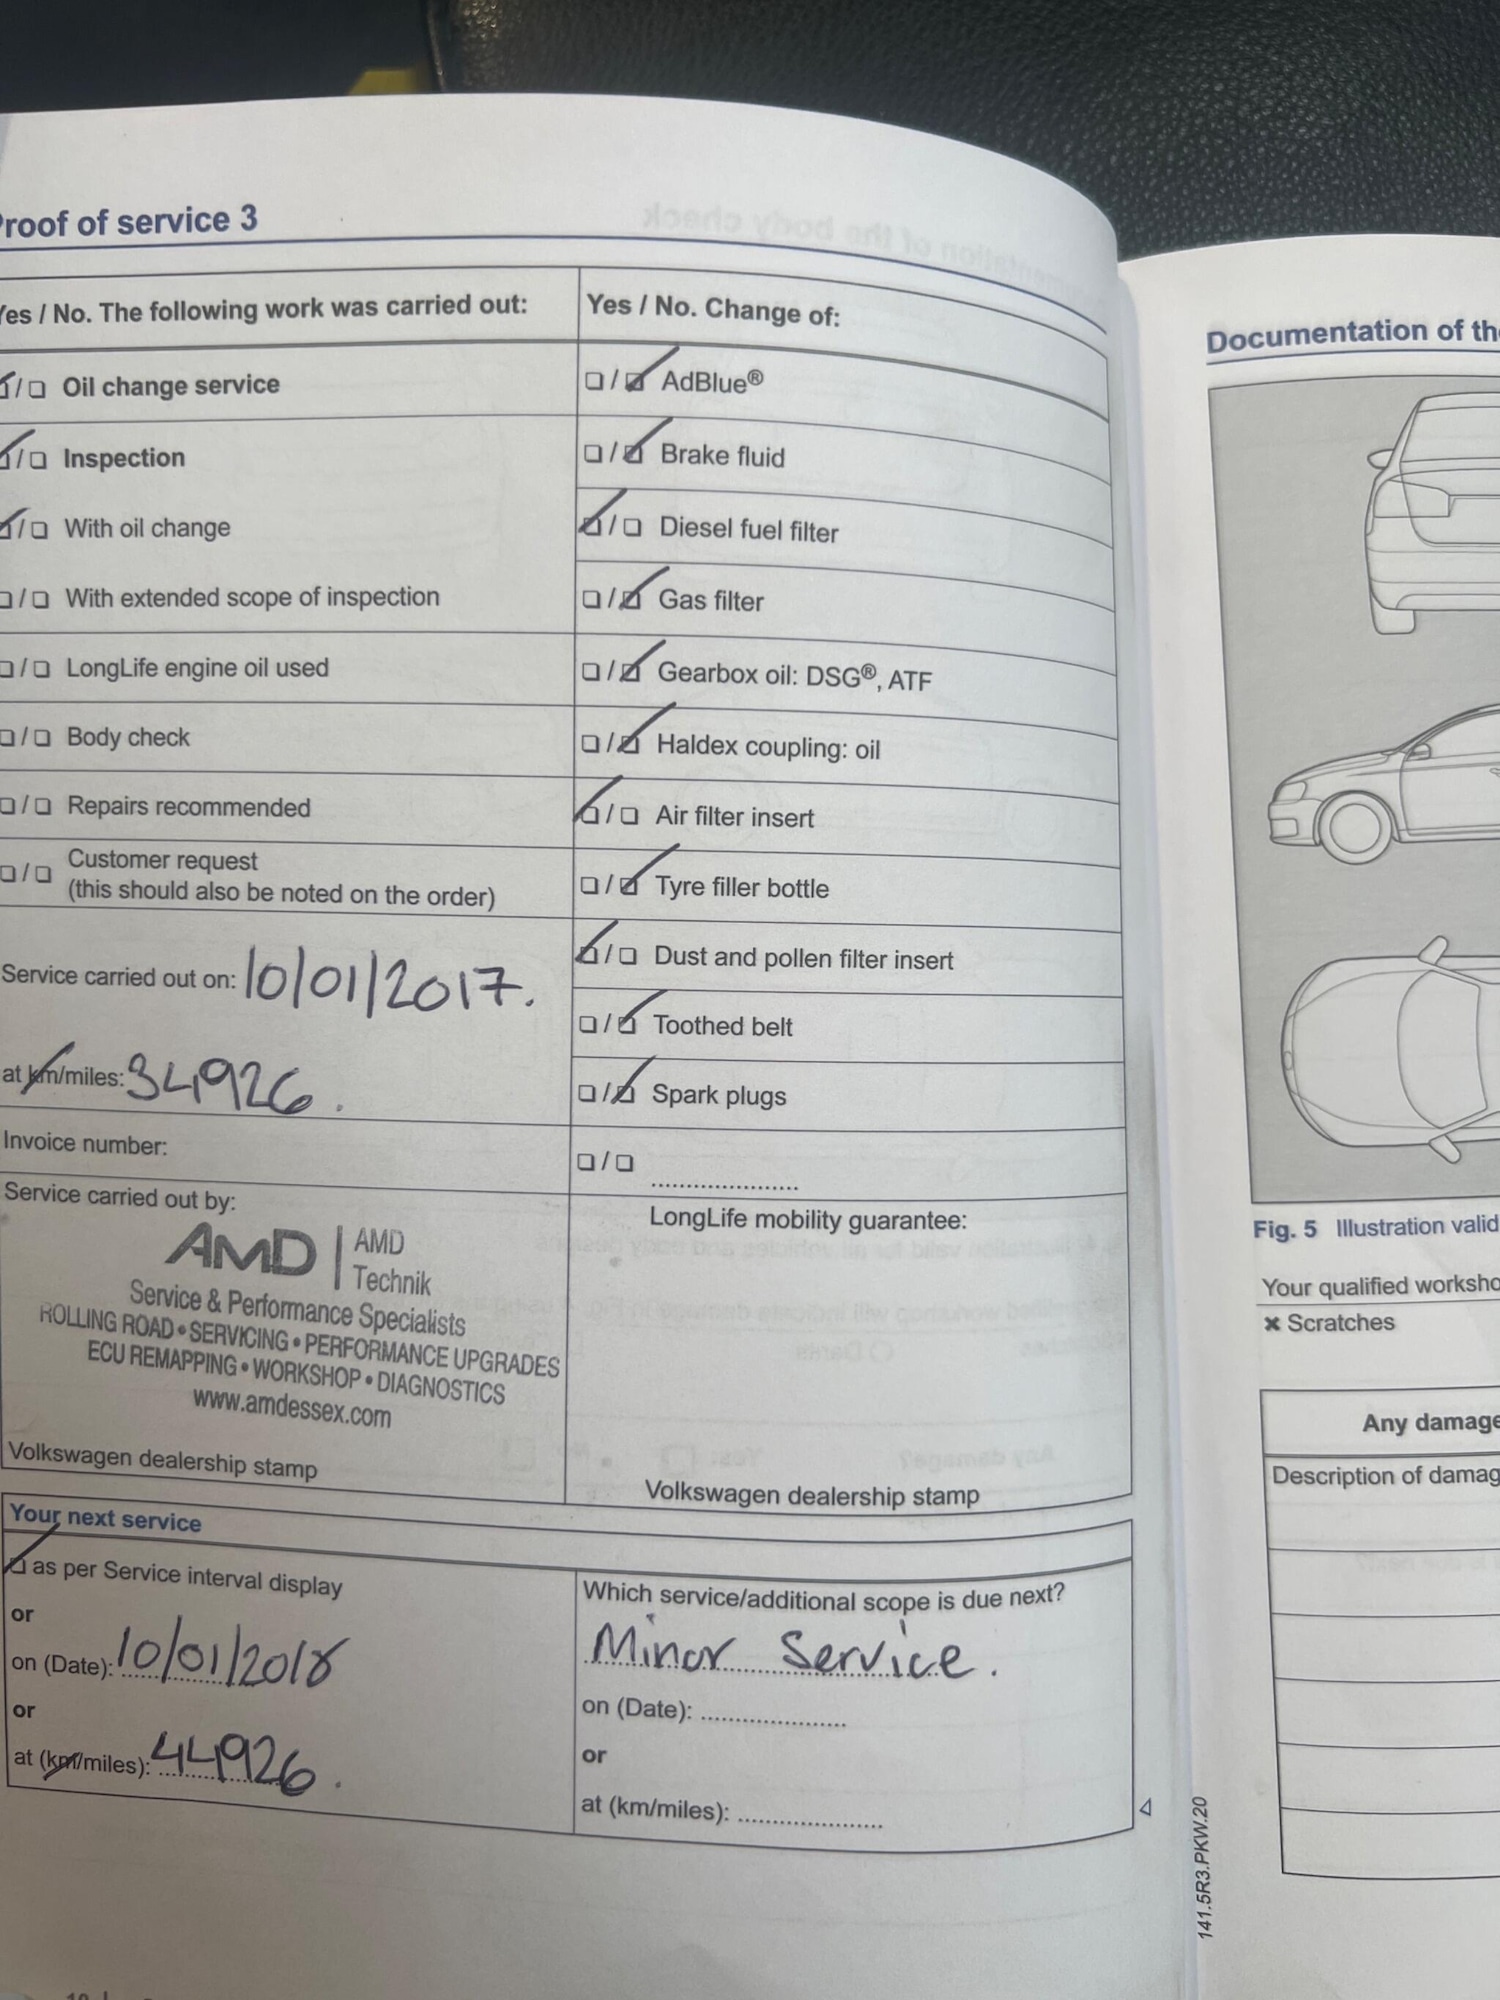 roof of service 3
Yes / No. The following work was carried out:
☑/☐ Oil change service
☑/☐ Inspection
☑/☐ With oil change
☐/☐ With extended scope of inspection
☐/☐ LongLife engine oil used
☐/☐ Body check
☐/☐ Repairs recommended
☐/☐ Customer request
(this should also be noted on the order)
Service carried out on: 10/01/2017.
at km/miles: 34926.
Invoice number:
Service carried out by:
AMD | AMD
Technik
Service & Performance Specialists
ROLLING ROAD • SERVICING • PERFORMANCE UPGRADES
ECU REMAPPING • WORKSHOP • DIAGNOSTICS
www.amdessex.com
Volkswagen dealership stamp
Yes / No. Change of:
☐/☑ AdBlue®
☐/☑ Brake fluid
☑/☐ Diesel fuel filter
☐/☑ Gas filter
☐/☑ Gearbox oil: DSG®, ATF
☐/☑ Haldex coupling: oil
☑/☐ Air filter insert
☐/☑ Tyre filler bottle
☑/☐ Dust and pollen filter insert
☐/☑ Toothed belt
☐/☑ Spark plugs
☐/☐ .....................
LongLife mobility guarantee:
Volkswagen dealership stamp
Your next service
☑ as per Service interval display
or
on (Date): 10/01/2018
or
at (km/miles): 44926.
Which service/additional scope is due next?
Minor Service.
on (Date): .....................
or
at (km/miles): .....................
141.5R3.PKW.20
Documentation of th
Fig. 5 Illustration valid
Your qualified worksho
✖ Scratches
Any damage
Description of damag